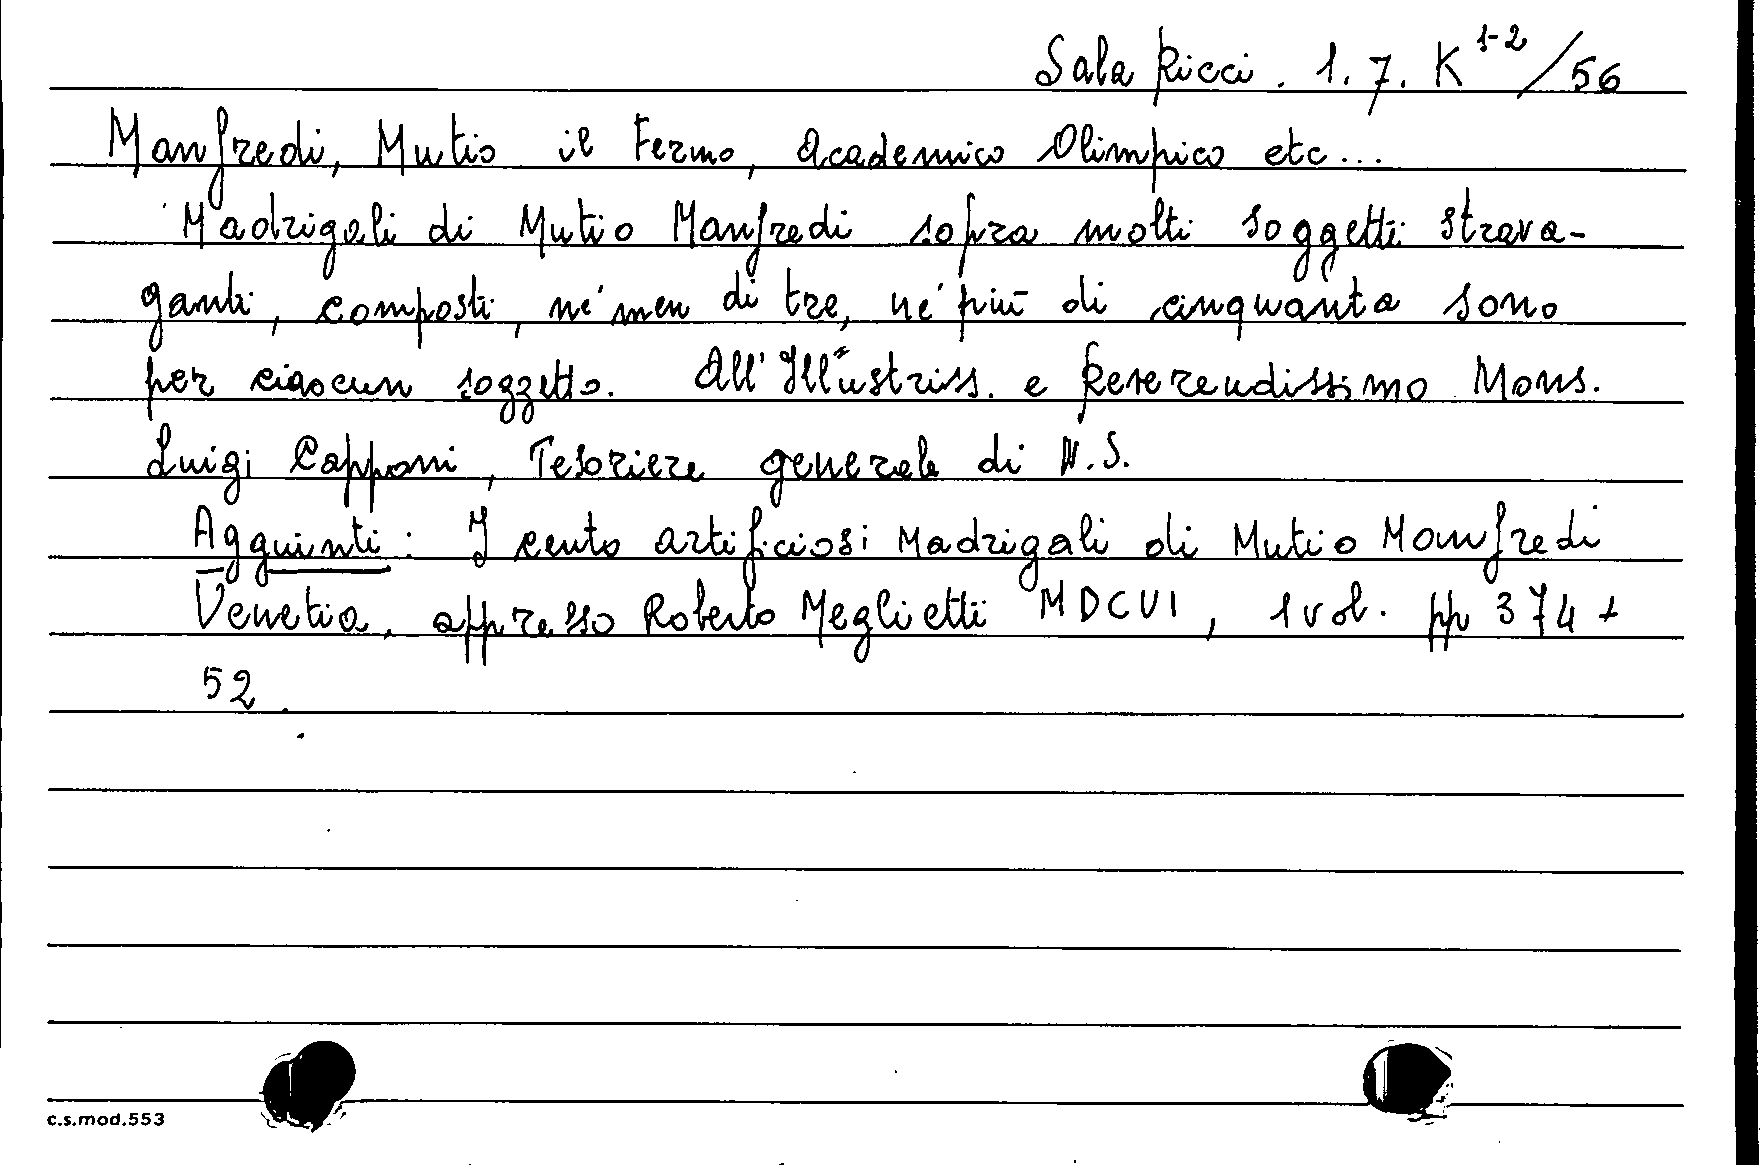 Sala Ricci. 1.7. K 1-2/56
Manfredi, Mutio il Fermo, Academico Olimpico etc...
Madrigali di Mutio Manfredi sopra molti soggetti strava-
ganti, composti, né men di tre, né più di cinquanta sono
per ciascun soggetto. All'Illustriss. e Reverendissimo Mons.
Luigi Capponi, Tesoriere generale di N.S.
Aggiunti: I cento artificiosi Madrigali di Mutio Manfredi
Venetia, appresso Roberto Meglietti MDCVI, 1 vol. pp 374 +
52.
c.s.mod.553